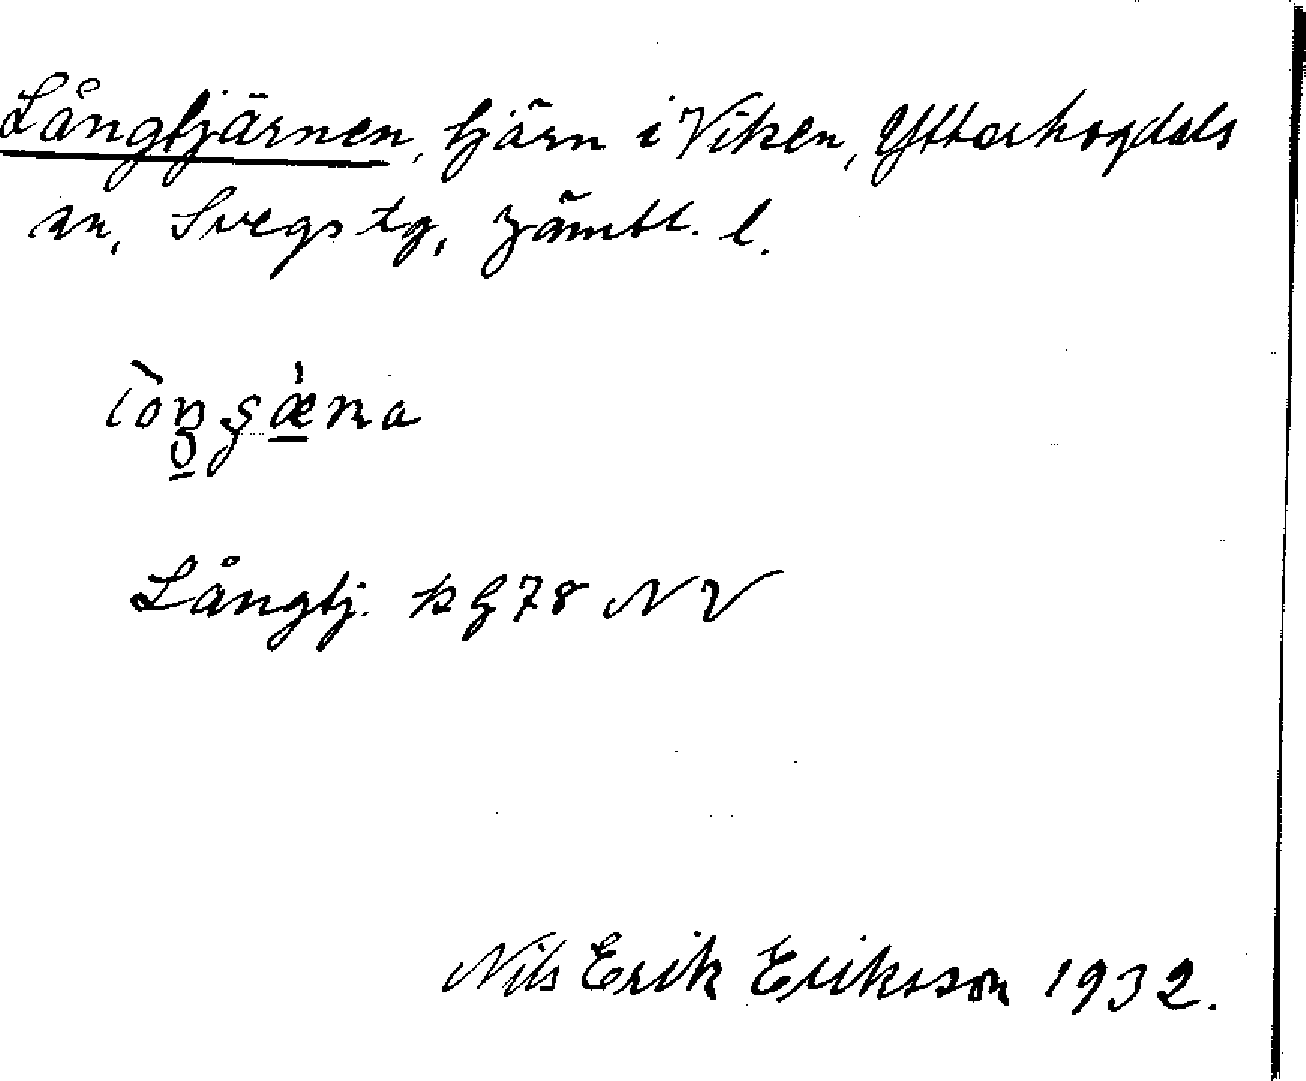 Långtjärnen, tjärn i Viken, Ytterhogdals
sn, Svegs tg, Jämtl. l.
Långtj. kg 78 NV
Nils Erik Eriksson 1932.